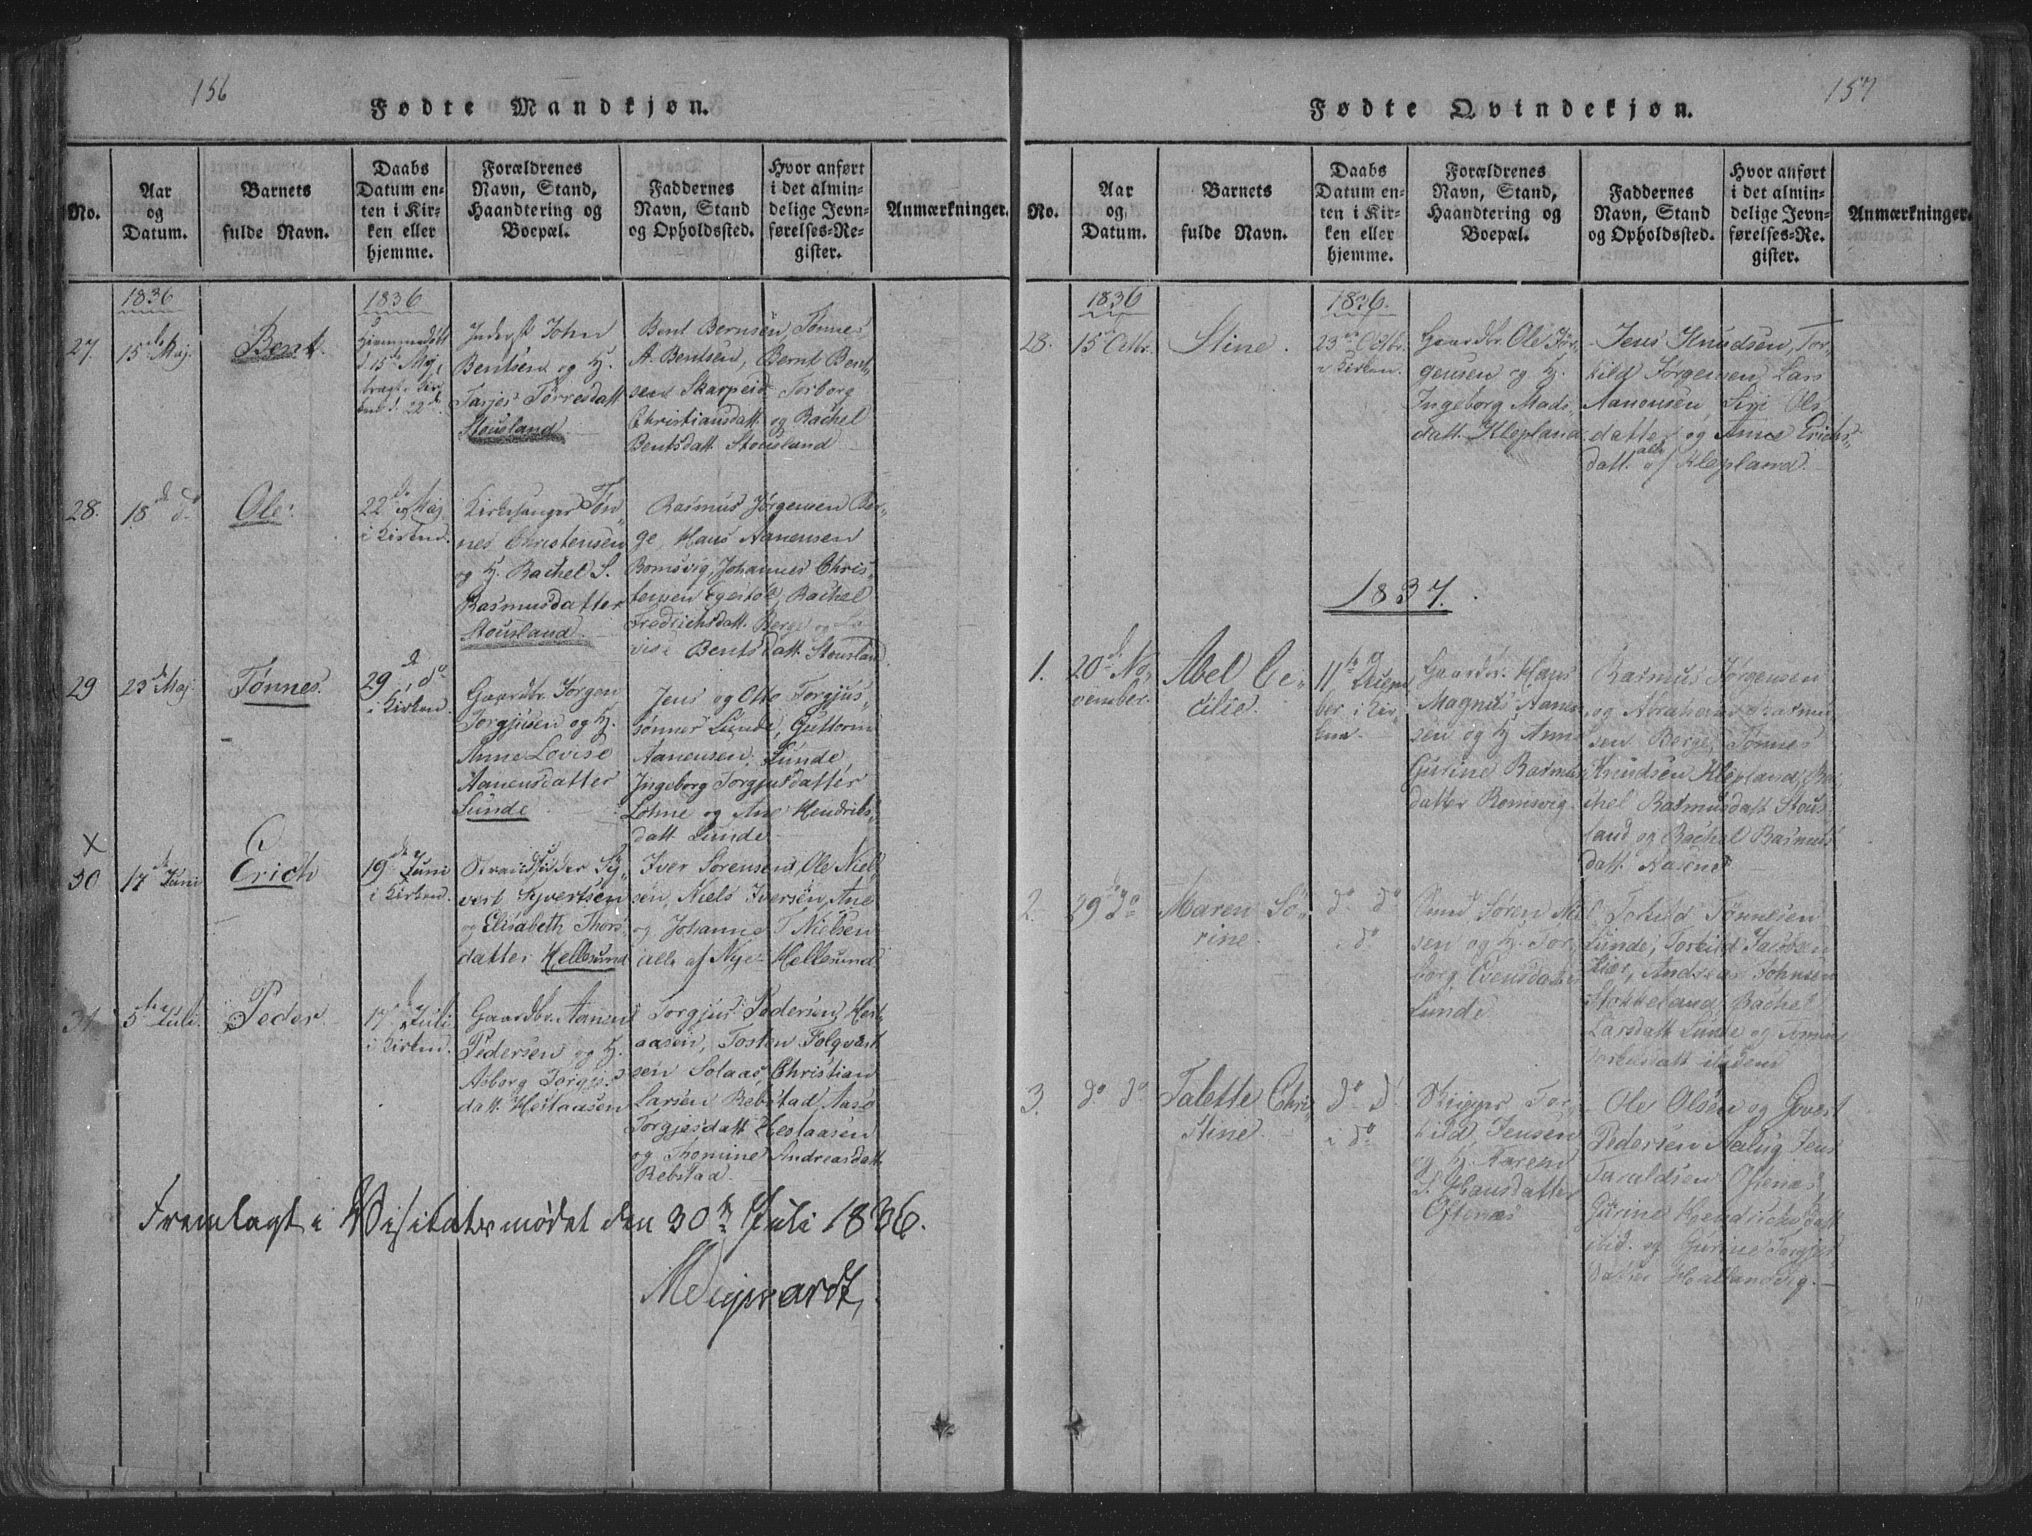 156
Fødte Mandkjøn.
No.
Aar
og
Datum.
Barnets
fulde Navn.
Daabs
Datum en-
ten i Kir-
ken eller
hjemme.
Forældrenes
Navn, Stand,
Haandtering og
Boepæl.
Faddernes
Navn, Stand
og Opholdssted.
Hvor anført
i det almin-
delige Jevn-
førelses-Re-
gister.
Anmærkninger.
1836
1836
27.
15de Maj.
Bent.
Hjemmedøbt
d. 15de Maj,
22de
Inderst John
Bentsen og H.
Tarjer Torresdatt
Stousland
Bent Bernsen, Tønnes
A. Bentsen, Bernt Bent-
sen Skarpeid Torborg
Christiansdatt og Rachel
Bentsdatt Stousland
28.
18de do
Ole.
22de Maj
i Kirken.
Kirkesanger Tøn-
nes Christensen
og H. Rachel S.
Rasmusdatter
Stousland
Rasmus Jørgensen Ber-
ge, Hans Aanensen
Romsvig, Johannes Chris-
tensen Egestøl, Rachel
Fredrichsdatt. Berge og Lo-
vise Bentsdatt. Stousland
29
23de Maj
Tønnes.
29de do
i Kirken.
Gaardbr. Jørgen
Torgjusen og H.
Anne Lovise
Aanensdatter
Lunde
Jens og Otto Torgjus-
sønner Lunde, Guttorm
Aanensen Lunde,
Ingeborg Torgjusdatter
Lohne og Ane Hendriks-
datt Lunde
×
30
17de Juni
Erich
19de Juni
i Kirken.
Strandsidder Sy-
vert Syvertsen
og Elisabeth Thors-
datter Hellesund
Iver Sørensen, Ole Niel-
sen, Niels Iversen, Ane
og Johanne T. Nielsen
alle af Nye Hellesund
31.
5te Juli.
Peder.
17de Juli
i Kirken.
Gaardbr. Aanen
Pedersen og H.
Asborg Torgjus-
datt. Hestaasen
Torgjus Pedersen Hest-
aasen, Tosten Folqvart-
sen Solaas, Christian
Larsen Rebstad, Aase
Torgjesdatt Hestaasen
og Thomine Andreasdatt.
Rebstad.
Fremlagt i Visitatsmødet den 30te Juli 1836.
157
Fødte Qvindekjøn.
No.
Aar
og
Datum.
Barnets
fulde Navn.
Daabs
Datum en-
ten i Kir-
ken eller
hjemme.
Forældrenes
Navn, Stand,
Haandtering og
Boepæl.
Faddernes
Navn, Stand
og Opholdssted.
Hvor anført
i det almin-
delige Jevn-
førelses-Re-
gister.
Anmærkninger.
1836
1836.
28.
15 Octbr.
Stine.
23de Octbr.
i Kirken.
Gaardbr. Ole Jør-
gensen og H.
Ingeborg Mads-
datt. Klepland
Jens Knudsen, Tor-
kild Jørgensen, Lars
Aanonsen, Siri Ols-
datter og Anne Erichs-
datt. alle af Klepland
1837.
1.
20de No-
vember.
Abel Ce-
cilie.
11te Decem-
ber i Kir-
ken
Gaardbr. Hans
Magnus Aanen-
sen og H. Anne
Gurine Rasmus-
datter Romsvig.
Rasmus Jørgensen
og Abraham Rasmu-
sen Berge, Tønnes
Knudsen Klepland, Ra-
chel Rasmusdatt Stous-
land og Rachel Rasmus-
datt.
2.
29 do
Maren Sø-
rine.
do do
i do
Søren Niel-
sen og H. Tor-
borg Evensdatt
Lunde
Torkild Tønnesen
Lunde, Torkild Jacobsen
Andreas Johnsen
Stokkeland, Rachel
Larsdatt Lunde og
ibidem
3.
do do
Talette Chri-
stine.
do do
i do
Skipper Tor-
kild Jensen
og H. Karen
S. Hansdatter
Oftenæs
Ole Olsen og Govert
Pedersen Høllug, Jens
Taraldsen Oftenæs,
Gurine Hendrichsdatt
ibid. og Gurine Torgjus-
datter Hallandvig.